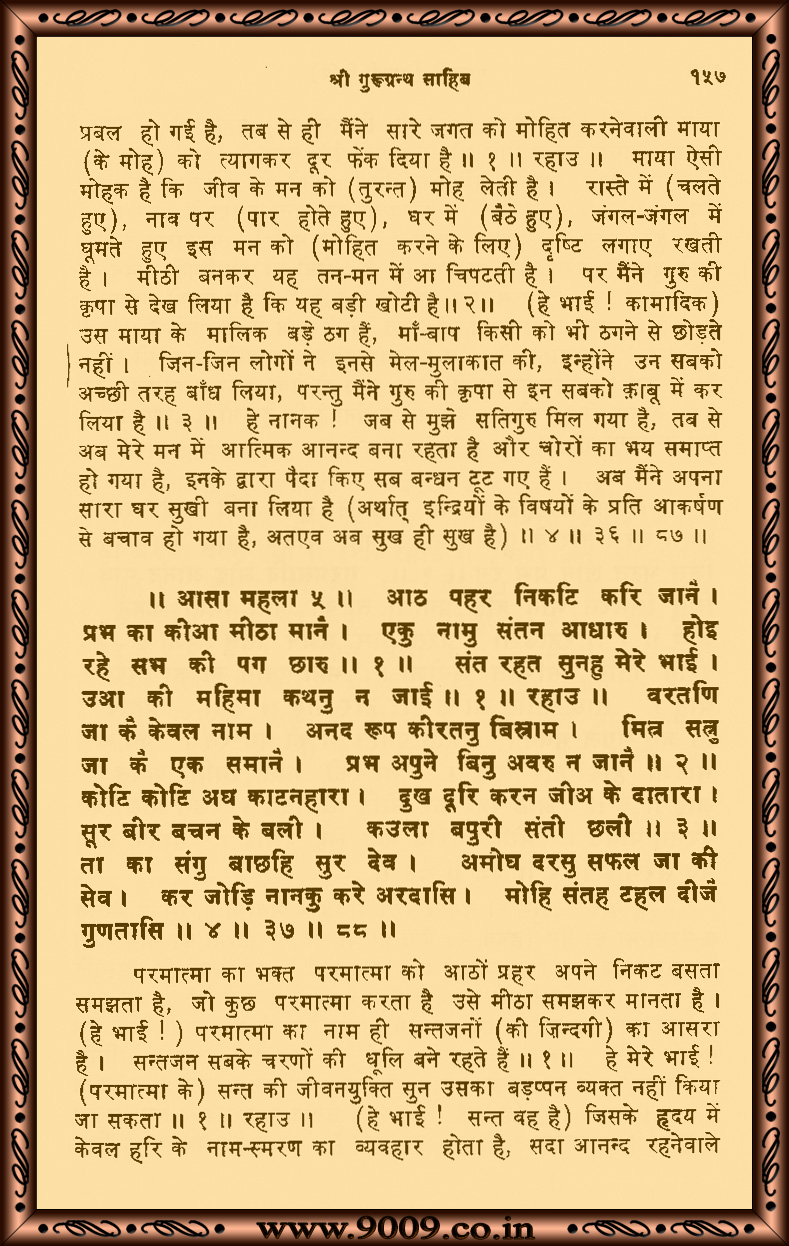 श्री गुरूग्रन्थ साहिब १५७
प्रबल हो गई है, तब से ही मैंने सारे जगत को मोहित करनेवाली माया
(के मोह) को त्यागकर दूर फेंक दिया है ॥ १ ॥ रहाउ ॥ माया ऐसी
मोहक है कि जीव के मन को (तुरन्त) मोह लेती है । रास्ते में (चलते
हुए), नाव पर (पार होते हुए), घर में (बैठे हुए), जंगल-जंगल में
घूमते हुए इस मन को (मोहित करने के लिए) दृष्टि लगाए रखती
है । मीठी बनकर यह तन-मन में आ चिपटती है । पर मैंने गुरु की
कृपा से देख लिया है कि यह बड़ी खोटी है॥ २॥ (हे भाई ! कामादिक)
उस माया के मालिक बड़े ठग हैं, माँ-बाप किसी को भी ठगने से छोड़ते
नहीं । जिन-जिन लोगों ने इनसे मेल-मुलाकात की, इन्होंने उन सबको
अच्छी तरह बाँध लिया, परन्तु मैंने गुरु की कृपा से इन सबको क़ाबू में कर
लिया है ॥ ३ ॥ हे नानक ! जब से मुझे सतिगुरु मिल गया है, तब से
अब मेरे मन में आत्मिक आनन्द बना रहता है और चोरों का भय समाप्त
हो गया है, इनके द्वारा पैदा किए सब बन्धन टूट गए हैं । अब मैंने अपना
सारा घर सुखी बना लिया है (अर्थात् इन्द्रियों के विषयों के प्रति आकर्षण
से बचाव हो गया है, अतएव अब सुख ही सुख है) ॥ ४ ॥ ३६ ॥ ८७ ॥
॥ आसा महला ५ ॥ आठ पहर निकटि करि जानै ।
प्रभ का कीआ मीठा मानै । एकु नामु संतन आधारु । होइ
रहे सभ की पग छारु ॥ १ ॥ संत रहत सुनहु मेरे भाई ।
उआ की महिमा कथनु न जाई ॥ १ ॥ रहाउ ॥ वरतणि
जा कै केवल नाम । अनद रूप कीरतनु बिस्राम । मित्र सत्रु
जा कै एक समानै । प्रभ अपुने बिनु अवरु न जानै ॥ २ ॥
कोटि कोटि अघ काटनहारा । दुख दूरि करन जीअ के दातारा ।
सूर बीर बचन के बली । कउला बपुरी संती छली ॥ ३ ॥
ता का संगु बाछहि सुर देव । अमोघ दरसु सफल जा की
सेव । कर जोड़ि नानकु करे अरदासि । मोहि संतह टहल दीजै
गुणतासि ॥ ४ ॥ ३७ ॥ ८८ ॥
परमात्मा का भक्त परमात्मा को आठों प्रहर अपने निकट बसता
समझता है, जो कुछ परमात्मा करता है उसे मीठा समझकर मानता है ।
(हे भाई ! ) परमात्मा का नाम ही सन्तजनों (की ज़िन्दगी) का आसरा
है । सन्तजन सबके चरणों की धूलि बने रहते हैं ॥ १॥ हे मेरे भाई !
(परमात्मा के) सन्त की जीवनयुक्ति सुन उसका बड़प्पन व्यक्त नहीं किया
जा सकता ॥ १ ॥ रहाउ ॥ (हे भाई ! सन्त वह है) जिसके हृदय में
केवल हरि के नाम-स्मरण का व्यवहार होता है, सदा आनन्द रहनेवाले
www.9009.co.in